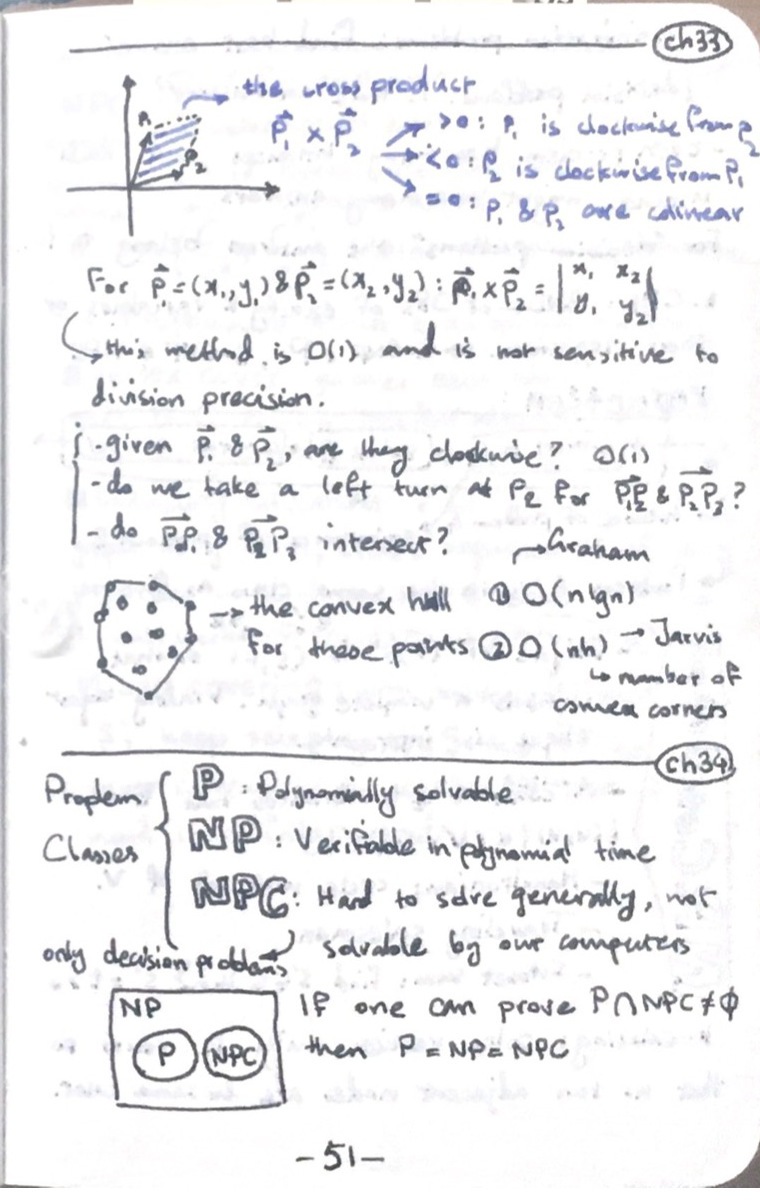 ch33
the cross product
P₁ P₂
P⃗₁ × P⃗₂
>0: P₁ is clockwise from P₂
<0: P₂ is clockwise from P₁
=0: P₁ & P₂ are colinear
For P⃗₁=(x₁,y₁) & P⃗₂=(x₂,y₂): P⃗₁×P⃗₂ = |x₁ x₂
y₁ y₂|
this method is O(1), and is not sensitive to
division precision.
- given P⃗₁ & P⃗₂, are they clockwise? O(1)
- do we take a left turn at P₂ for P₁P₂ & P₂P₃?
- do P₀P₁ & P₂P₃ intersect?
Graham
→ the convex hull ① O(n lgn)
for these points ② O(nh) → Jarvis
↳ number of
convex corners
ch34
Proplem
Classes
P: Polynomially solvable
NP: Verifiable in polynomial time
NPC: Hard to solve generally, not
solvable by our computers
only decision problems
NP
P NPC
If one can prove P∩NPC≠ϕ
then P=NP=NPC
-51-